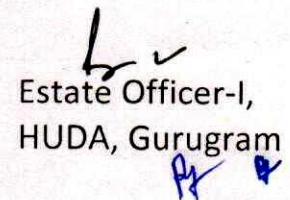 Estate Officer-I,
HUDA, Gurugram